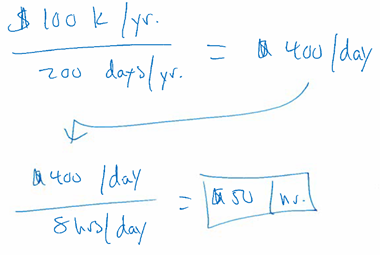 $100 k /yr.
200 days/yr. = $400/day
$400 /day
8 hrs/day = $50 /hr.